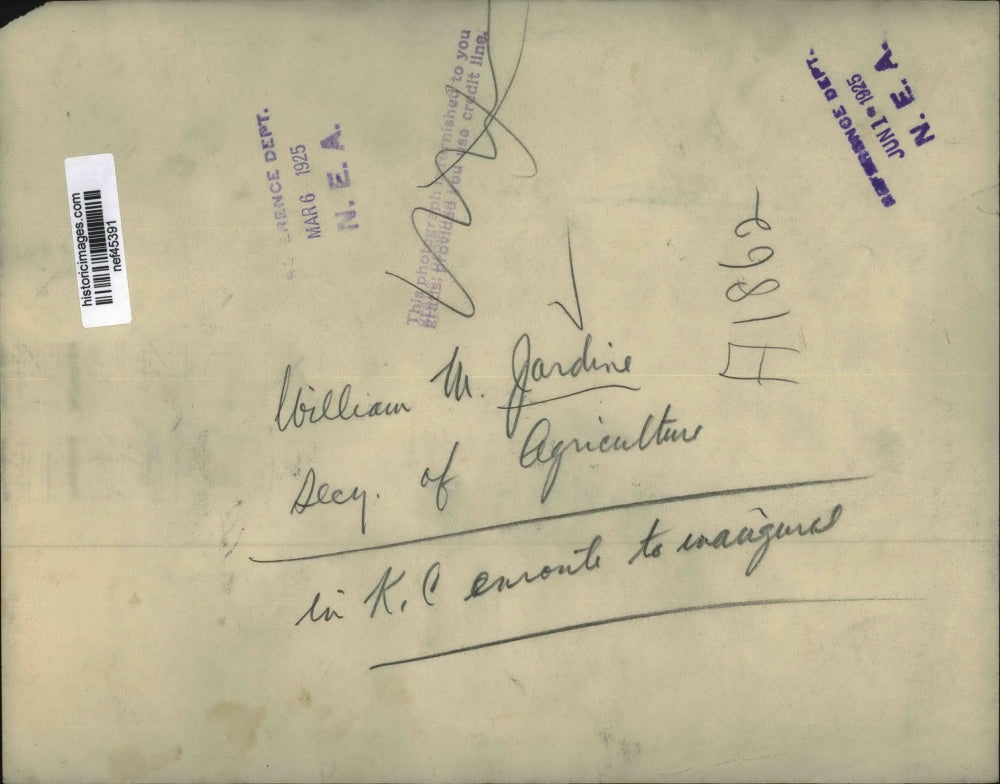 historicimages.com
nef45391
REFERENCE DEPT.
MAR 6 1925
N. E. A.
This photograph furnished to you
gratis; provided you use credit line.
REFERENCE DEPT.
JUN 1 1925
N. E. A.
William M. Jardine
Secy. of Agriculture
in K.C enroute to inaugural